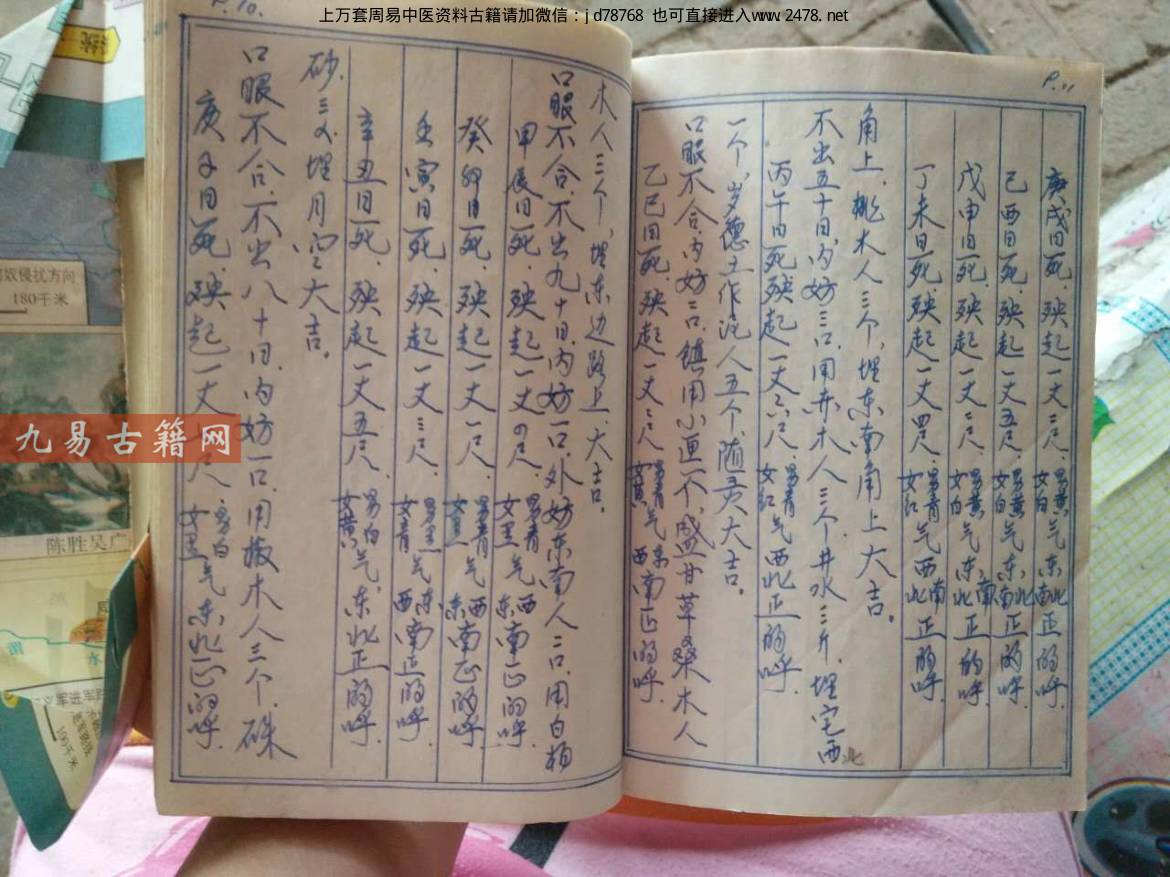 上万套周易中医资料古籍请加微信:jd78768 也可直接进入www.2478.net
P.10.
庚子日死.殃起一丈 尺.男白女黑气东北正的呼.
口眼不合,不出八十日,内妨一口.用椴木人三个.硃
砂.三文埋月空大吉。
辛丑日死.殃起一丈五尺.男白女黄气.东北正的呼.
壬寅日死.殃起一丈三尺.男黑女青气东西南正的呼.
癸卯日死.殃起一丈一尺.男青女黑气西东南正的呼.
甲辰日死.殃起一丈四尺.男青女黑气西东南正的呼.
口眼不合,不出九十日,内妨一口.外妨东南人二口.用白柏
木人三个,埋东边路上,大吉。
P.11
乙巳日死.殃起一丈二尺.男青女黄气东西南正的呼.
口眼不合内妨二口.镇用小匣不盛甘草桑木人
一个,岁德土作泥人五个,随灵大吉。
丙午日死殃起一丈六尺.男青女红气西北正的呼.
不出五十日,内妨三口.用赤木人三个井水三斤.埋宅西北
角上.桃木人三个,埋东南角上大吉。
丁未日死.殃起一丈四尺.男青女红气西南北正的呼.
戊申日死.殃起一丈二尺.男黄女白气东南北正的呼.
己酉日死.殃起一丈五尺.男黄女白气东北南正的呼.
庚戌日死.殃起一丈三尺.男黄女白气东北南正的呼.
九易古籍网
奴侵扰方向
180千米
陈胜吴广
190千米